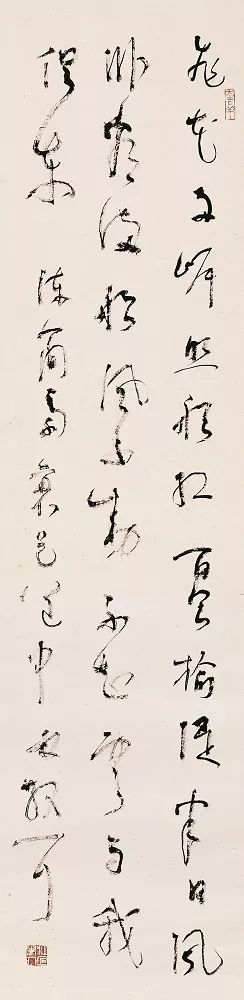 飛花兩岸照船紅百里榆堤半日風
卧看滿船風不動不知雲與我
俱東 陳簡齋襄邑道中 散耳